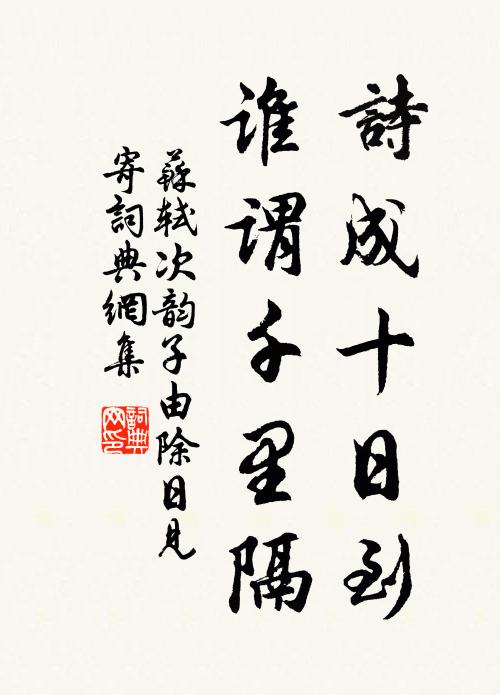 詩成十日到
誰謂千里隔
蘇軾次韵子由除日見
寄詞典網集
詞典
网印